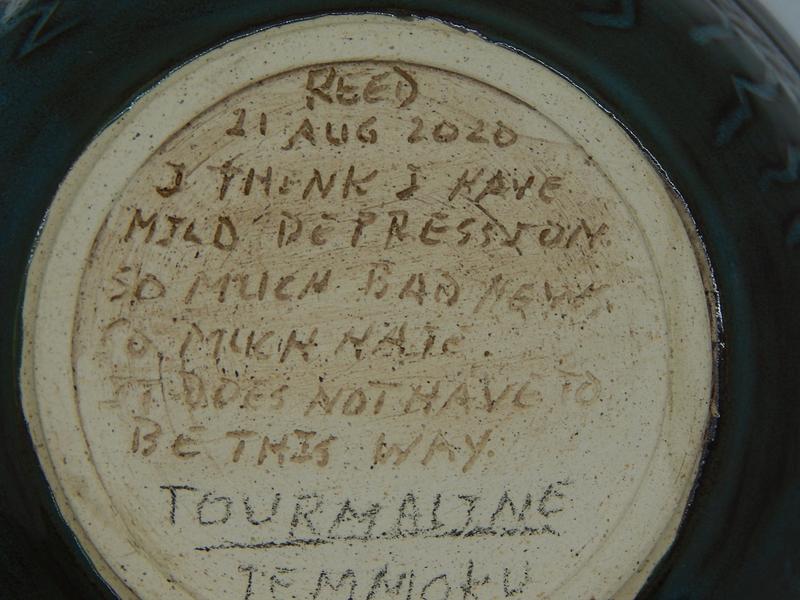 REED
21 AUG 2020
I THINK I HAVE
MILD DEPRESSION.
SO MUCH BAD NEWS.
SO MUCH HATE.
IT DOES NOT HAVE TO
BE THIS WAY.
TOURMALINE
TEMMOKU